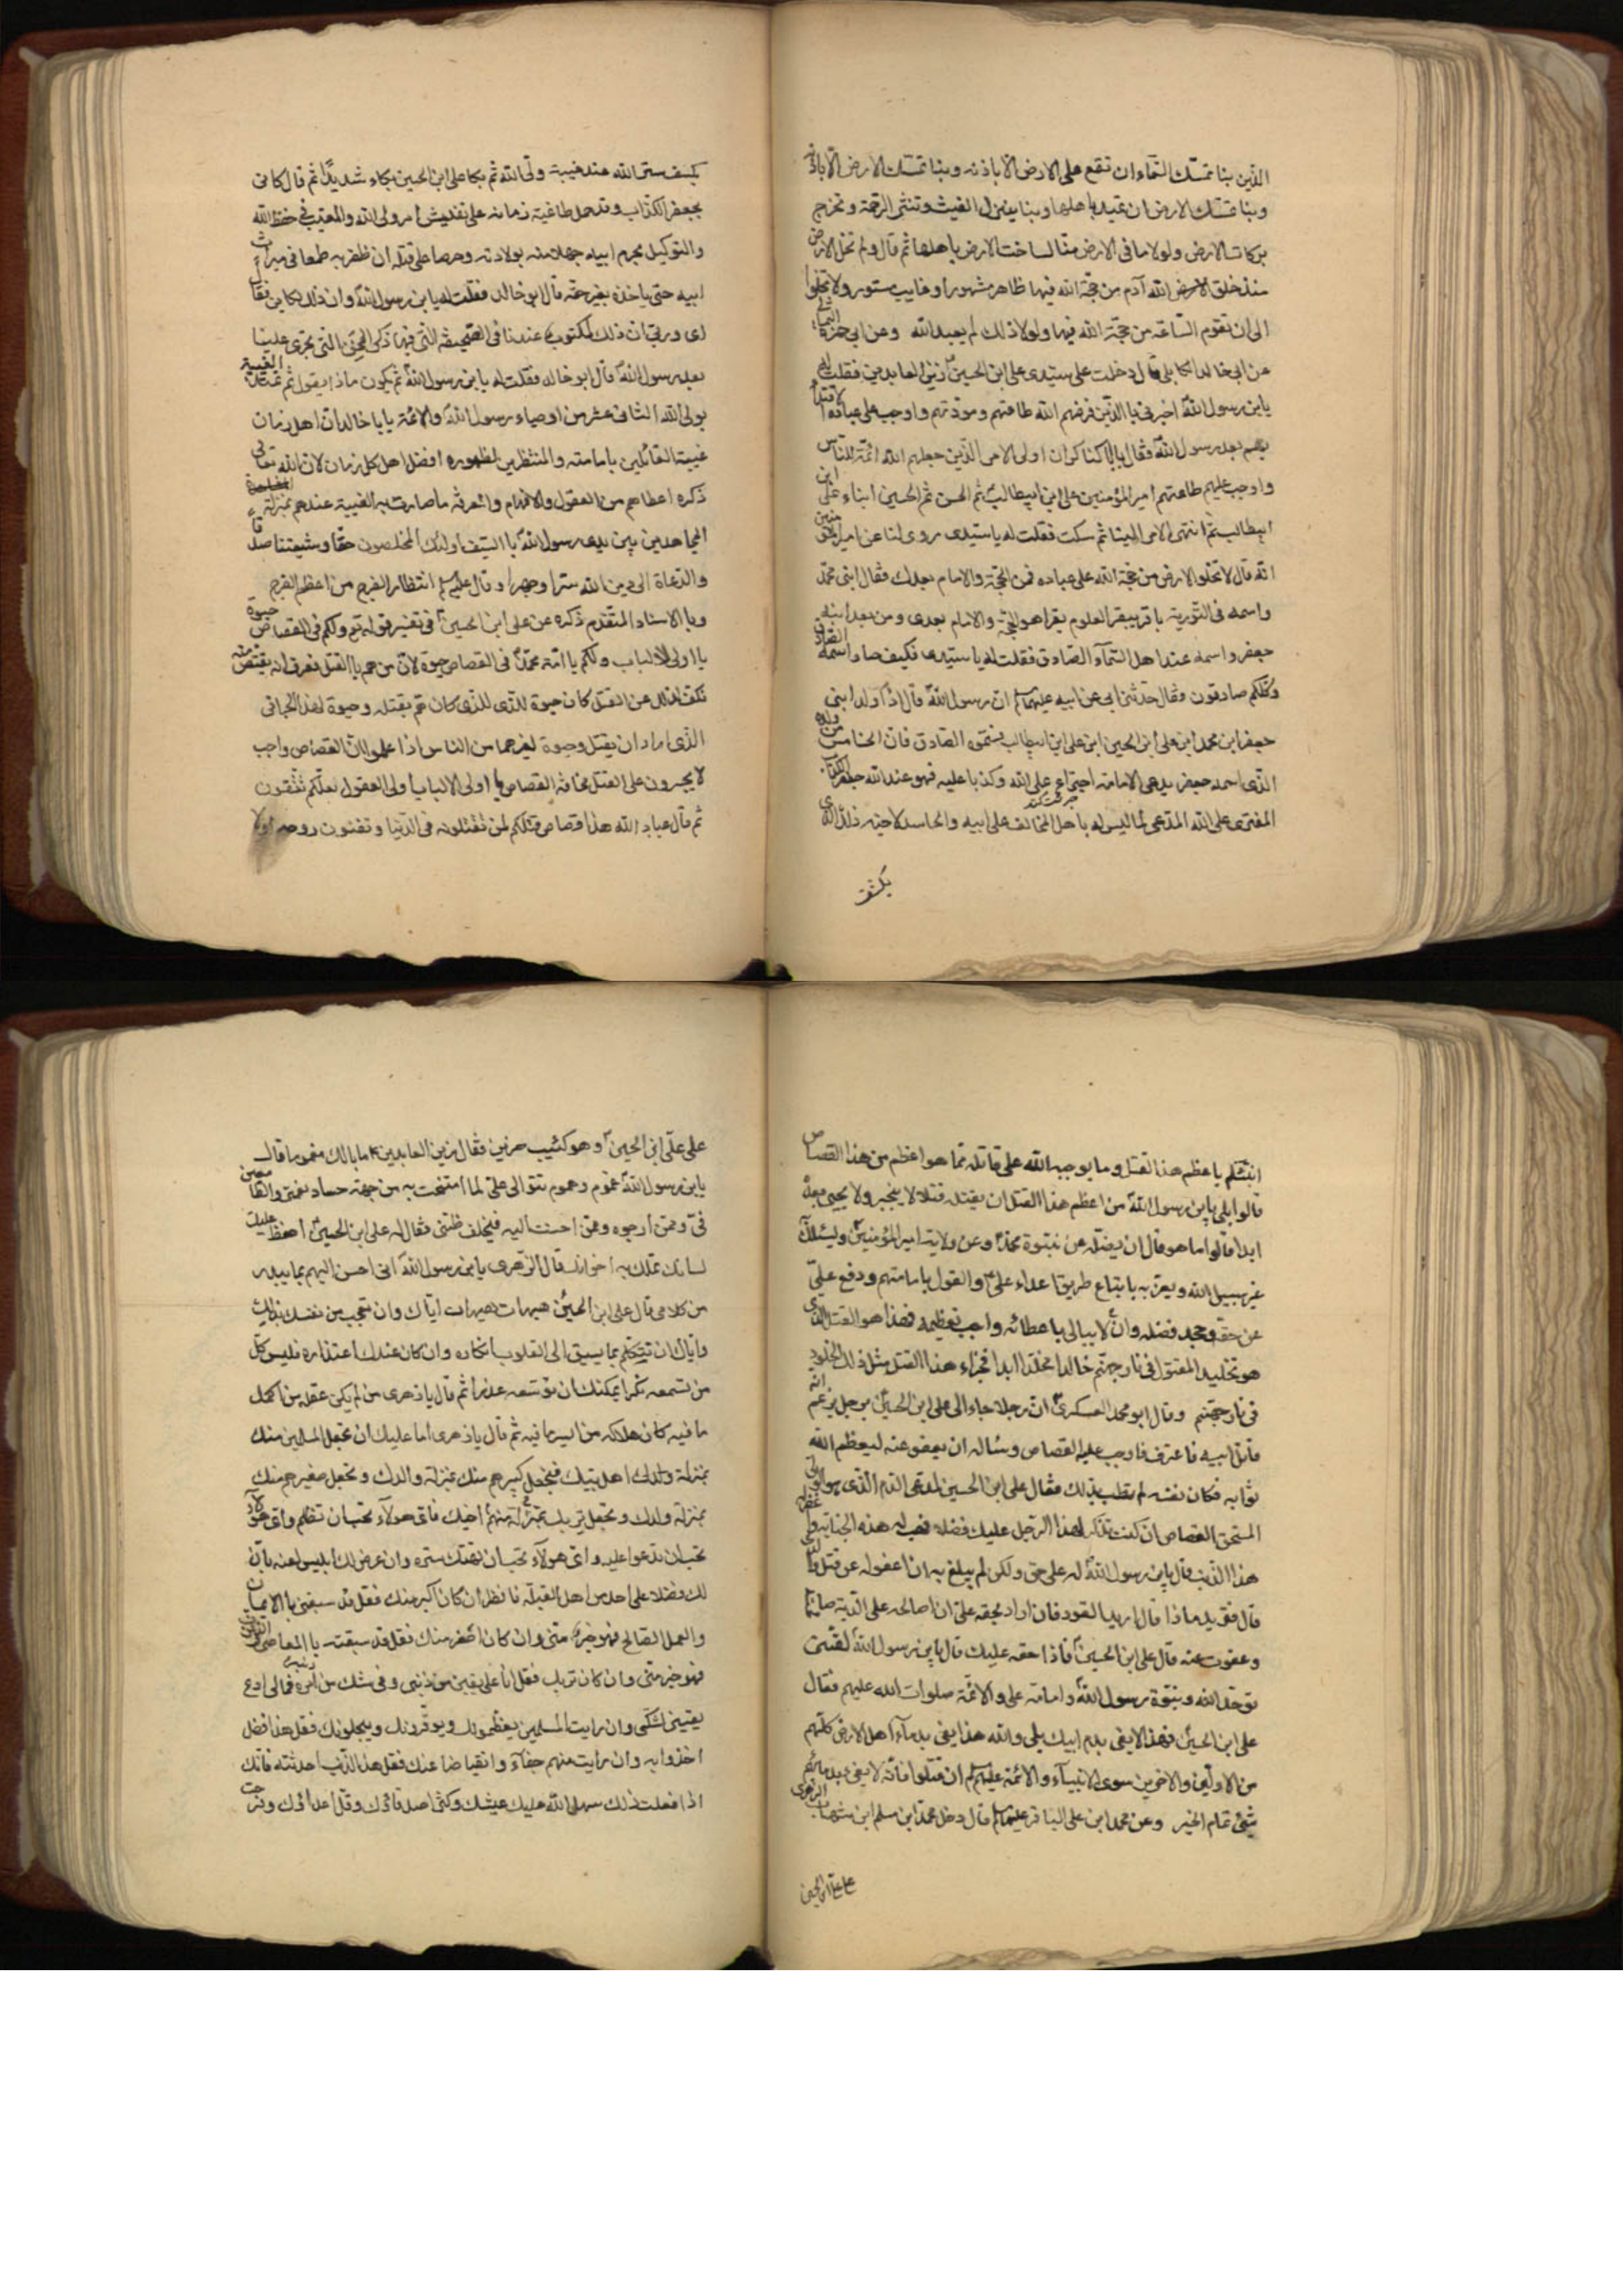 الذين بنا تمسك السماء ان تقع على الارض الا باذنه وبنا تمسك الارض الا باذنه
وبنا تمسك الارض ان تميد باهلها وبنا ينزل الغيث وتنشر الرحمة وتخرج
بركات الارض ولولا ما في الارض منا لساخت الارض باهلها ثم قال ولم تخل الارض
منذ خلق الله آدم من حجة الله فيها ظاهر مشهور او غايب مستور ولا تخلوا
الى ان تقوم الساعة من حجة الله فيها ولولا ذلك لم يعبد الله وعن ابي حمزة الثمالي
عن ابي خالد الكابلي قال دخلت على سيدى على ابن الحسين زين العابدين فقلت له
يابن رسول الله اخبرنى بالذين فرض الله طاعتهم ومودتهم واوجب على عباده الاقتداء
بهم بعد رسول الله فقال يا كنكر ان اولى الامر الذين جعلهم الله ائمة للناس
واوجب عليهم طاعتهم امير المؤمنين على ابن ابيطالب ثم الحسن ثم الحسين ابناء على ابن
ابيطالب ثم انتهى الامر الينا ثم سكت فقلت له يا سيدى روى لنا عن امير المؤمنين
انه قال لا تخلو الارض من حجة الله على عباده فمن الحجة والامام بعدك فقال ابنى محمد
واسمه فى التورية باقر يبقر العلوم بقرا هو الحجة والامام بعدى ومن بعد ابنه
جعفر واسمه عند اهل السمآء الصادق فقلت له يا سيدى فكيف صار اسمه الصادق
وكلكم صادقون فقال حدثنى ابى عن ابيه عليهما ان رسول الله قال اذا ولد ابنى
جعفر ابن محمد ابن على ابن الحسين ابن على ابن ابيطالب فسموه الصادق فان الخامس من ولده
الذى اسمه جعفر يدعى الامامة اجتراء على الله وكذبا عليه فهو عند الله جعفر الكذاب
المفترى على الله المدعى لما ليس له باهل المخالف على ابيه والحاسد لاخيه ذلك الذى
يكشف
يكشف ستر الله عند غيبة ولى الله ثم بكا على ابن الحسين بكاء شديدا ثم قال كانى
بجعفر الكذاب وقد حمل طاغية زمانه على تفتيش امر ولى الله والمغيب فى حفظ الله
والتوكيل بحرم ابيه جهلا منه بولادته وحرصا على قتله ان ظفر به طمعا فى ميراث
ابيه حتى ياخذه بغير حقه قال ابو خالد فقلت له يابن رسول الله وان ذلك لكاين فقال
اى وربى ان ذلك لمكتوب عندنا فى الصحيفة التى فيها ذكر المحن التى تجرى علينا
بعد رسول الله قال ابو خالد فقلت له يابن رسول الله ثم يكون ماذا يقول ثم تمتد الغيبة
بولى الله الثانى عشر من اوصياء رسول الله والائمة يابا خالد ان اهل زمان
غيبته القائلين بامامته والمنتظرين لظهوره افضل اهل كل زمان لان الله تعالى
ذكره اعطاهم من العقول والافهام والمعرفة ما صارت به الغيبة عندهم بمنزلة
المجاهدين بين يدى رسول الله با السيف اولئك المخلصون حقا وشيعتنا صدقا
والدعاة الى دين الله سترا وجهرا وقال عليه السلم انتظار الفرج من اعظم الفرج
وبا الاسناد المتقدم ذكره عن على ابن الحسين فى تفسير قوله تع ولكم فى القصاص حيوة
يا اولى الالباب ولكم يا امة محمد فى القصاص حيوة لان من هم با القتل فعرف انه يقتص منه
فكف لذلك عن القتل كان حيوة للذى كان هم بقتله وحيوة لهذا الجانى
الذى اراد ان يقتل وحيوة لغيرهما من الناس اذا علموا ان القصاص واجب
لا يجسرون على القتل مخافة القصاص يا اولى الالباب اولى العقول لعلكم تتقون
ثم قال عباد الله هذا قصاص قتلكم لمن تقتلونه فى الدنيا وتفنون روحه اولا
انبئكم باعظم هذا القتل وما يوجب الله على قاتله مما هو اعظم من هذا القصاص
قالوا بلى يابن رسول الله من اعظم هذا القتل ان يقتله قتلا لا ينجبر ولا يحيى بعده
ابدا قالوا ما هو قال ان يضله عن نبوة محمد وعن ولاية امير المؤمنين ويسلك
غير سبيل الله ويغر به باتباع طريق اعداء على والقول بامامتهم ودفع على
عن حقه وجحد فضله وان لا يبالى باعطائه واجب تعظيمه فهذا هو القتل الذى
هو تخليد المقتول فى نار جهنم خالدا مخلدا ابدا فجزاء هذا القتل مثل ذلك الخلود
فى نار جهنم وقال ابو محمد العسكرى ان رجلا جاء الى على ابن الحسين برجل يزعم انه
قاتل ابيه فاعترف فاوجب عليه القصاص وساله ان يعفو عنه ليعظم الله
ثوابه فكان نفسه لم تطب بذلك فقال على ابن الحسين للمدعى الدم الذى هو الولى
المستحق القصاص ان كنت تذكر لهذا الرجل عليك فضلا فهب له هذه الجناية واغفر له
هذا الذنب قال يابن رسول الله له على حق ولكن لم يبلغ به ان اعفو له عن قتل والدى
قال فتريد ماذا قال اريد القود فان اراد بحقه على ان اصالحه على الدية صالحته
وعفوت عنه قال على ابن الحسين فماذا حقه عليك قال يابن رسول الله لقننى
توحيد الله ونبوة رسول الله وامامة على والائمة صلوات الله عليهم فقال
على ابن الحسين فهذا لا يفى بدم ابيك بلى والله هذا يفى بدماء اهل الارض كلهم
من الاولين والاخرين سوى الانبيآء والائمة عليهم السلم ان قتلوا فانه لا يفى بدمائهم
شئ تمام الخبر وعن محمد ابن على الباقر عليهما قال دخل محمد ابن مسلم ابن شهاب الزهرى
على على ابن الحسين
على على ابن الحسين وهو كئيب حزين فقال زين العابدين ما بالك مغموما قال
يابن رسول الله غموم وهموم تتوالى على لما امتحنت به من جهة حساد نعمتى والطامعين
فى وممن ارجوه وممن احسنت اليه فيخلف ظنى فقال له على ابن الحسين احفظ عليك
لسانك تملك به اخوانك قال الزهرى يابن رسول الله انى احسن اليهم بما يبدر
من كلامى قال على ابن الحسين هيهات هيهات اياك وان تعجب من نفسك بذلك
واياك ان تتكلم بما يسبق الى القلوب انكاره وان كان عندك اعتذاره فليس كل
من تسمعه نكرا يمكنك ان توسعه عذرا ثم قال يا زهرى من لم يكن عقله من اكمل
ما فيه كان هلاكه من ايسر ما فيه ثم قال يا زهرى اما عليك ان تجعل المسلمين منك
بمنزلة اهل بيتك فتجعل كبيرهم منك بمنزلة والدك وتجعل صغيرهم منك
بمنزلة ولدك وتجعل تربك بمنزلة منهم اخيك فاى هولآء تحب ان تظلم واى هولاء
تحب ان تدعوا عليه واى هولآء تحب ان تهتك ستره وان عرض لك ابليس لعنه بان
لك فضلا على احد من اهل القبلة فانظر ان كان اكبر منك فقل قد سبقنى با الايمان
والعمل الصالح فهو خير منى وان كان اصغر منك فقل قد سبقته با المعاصى والذنوب
فهو خير منى وان كان تربك فقل انا على يقين من ذنبى وفى شك من امره فمالى ادع
يقينى لشكى وان رايت المسلمين يعظمونك ويوقرونك ويبجلونك فقل هذا فضل
اخذوا به وان رايت منهم جفآء وانقباضا عنك فقل هذا الذنب احدثته فانك
اذا فعلت ذلك سهل الله عليك عيشك وكثر اصدقائك وقل اعدائك وفرحت